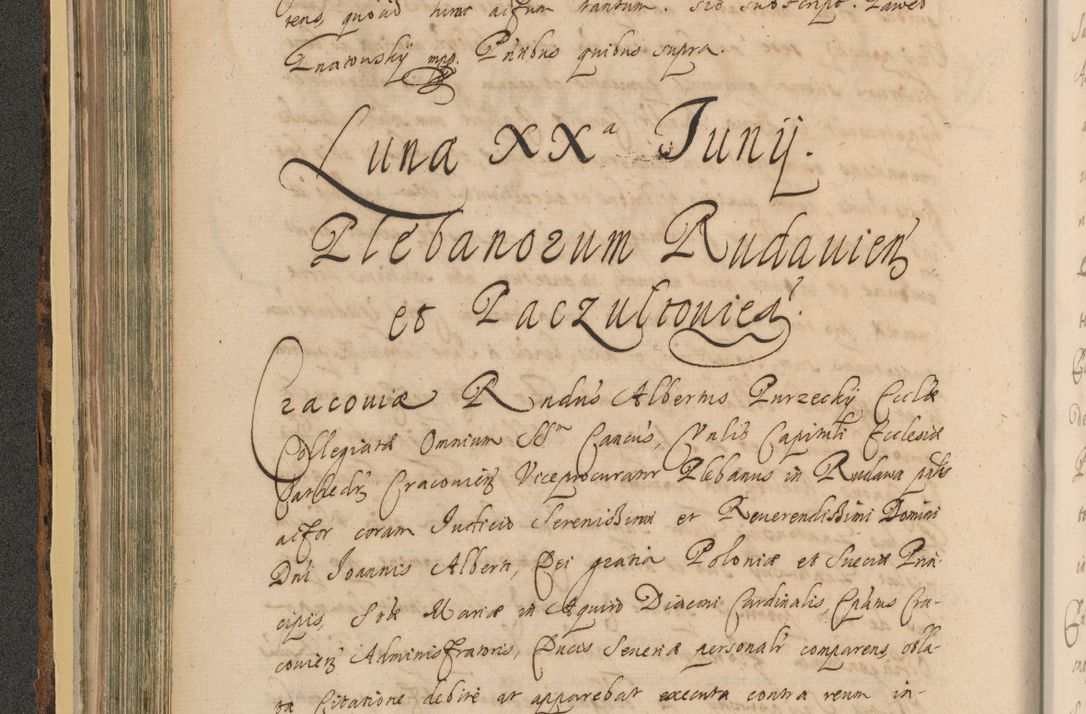 tens, quoad hunc actum tantum. sic subscript. Pawel
Gnatowsky mpp. Pntibus quibus supra.
Lunæ XXa Junij.
Plebanorum Rudauien
et Paczultouien.
Cracouiæ Rndus Albertus Purzecky Ecclæ
Collegiatæ Omnium SStm Cancus, Vnlis Capituli Ecclesiæ
Cathedr Cracouien Viceprocurator Plebanus in Rudawa
actor coram Judicio Serenissimi et Reuerendissimi Domini
Dni Joannis Alberti, Dei gratia Poloniæ et Sueciæ Prin-
cipis, Stæ Mariæ in Aquiro Diaconi Cardinalis, Epatus Cra-
couien Administratoris, Ducis Seueriæ personalr comparens, obla-
ta Citatione debite ut apparebat executa contra reum in-